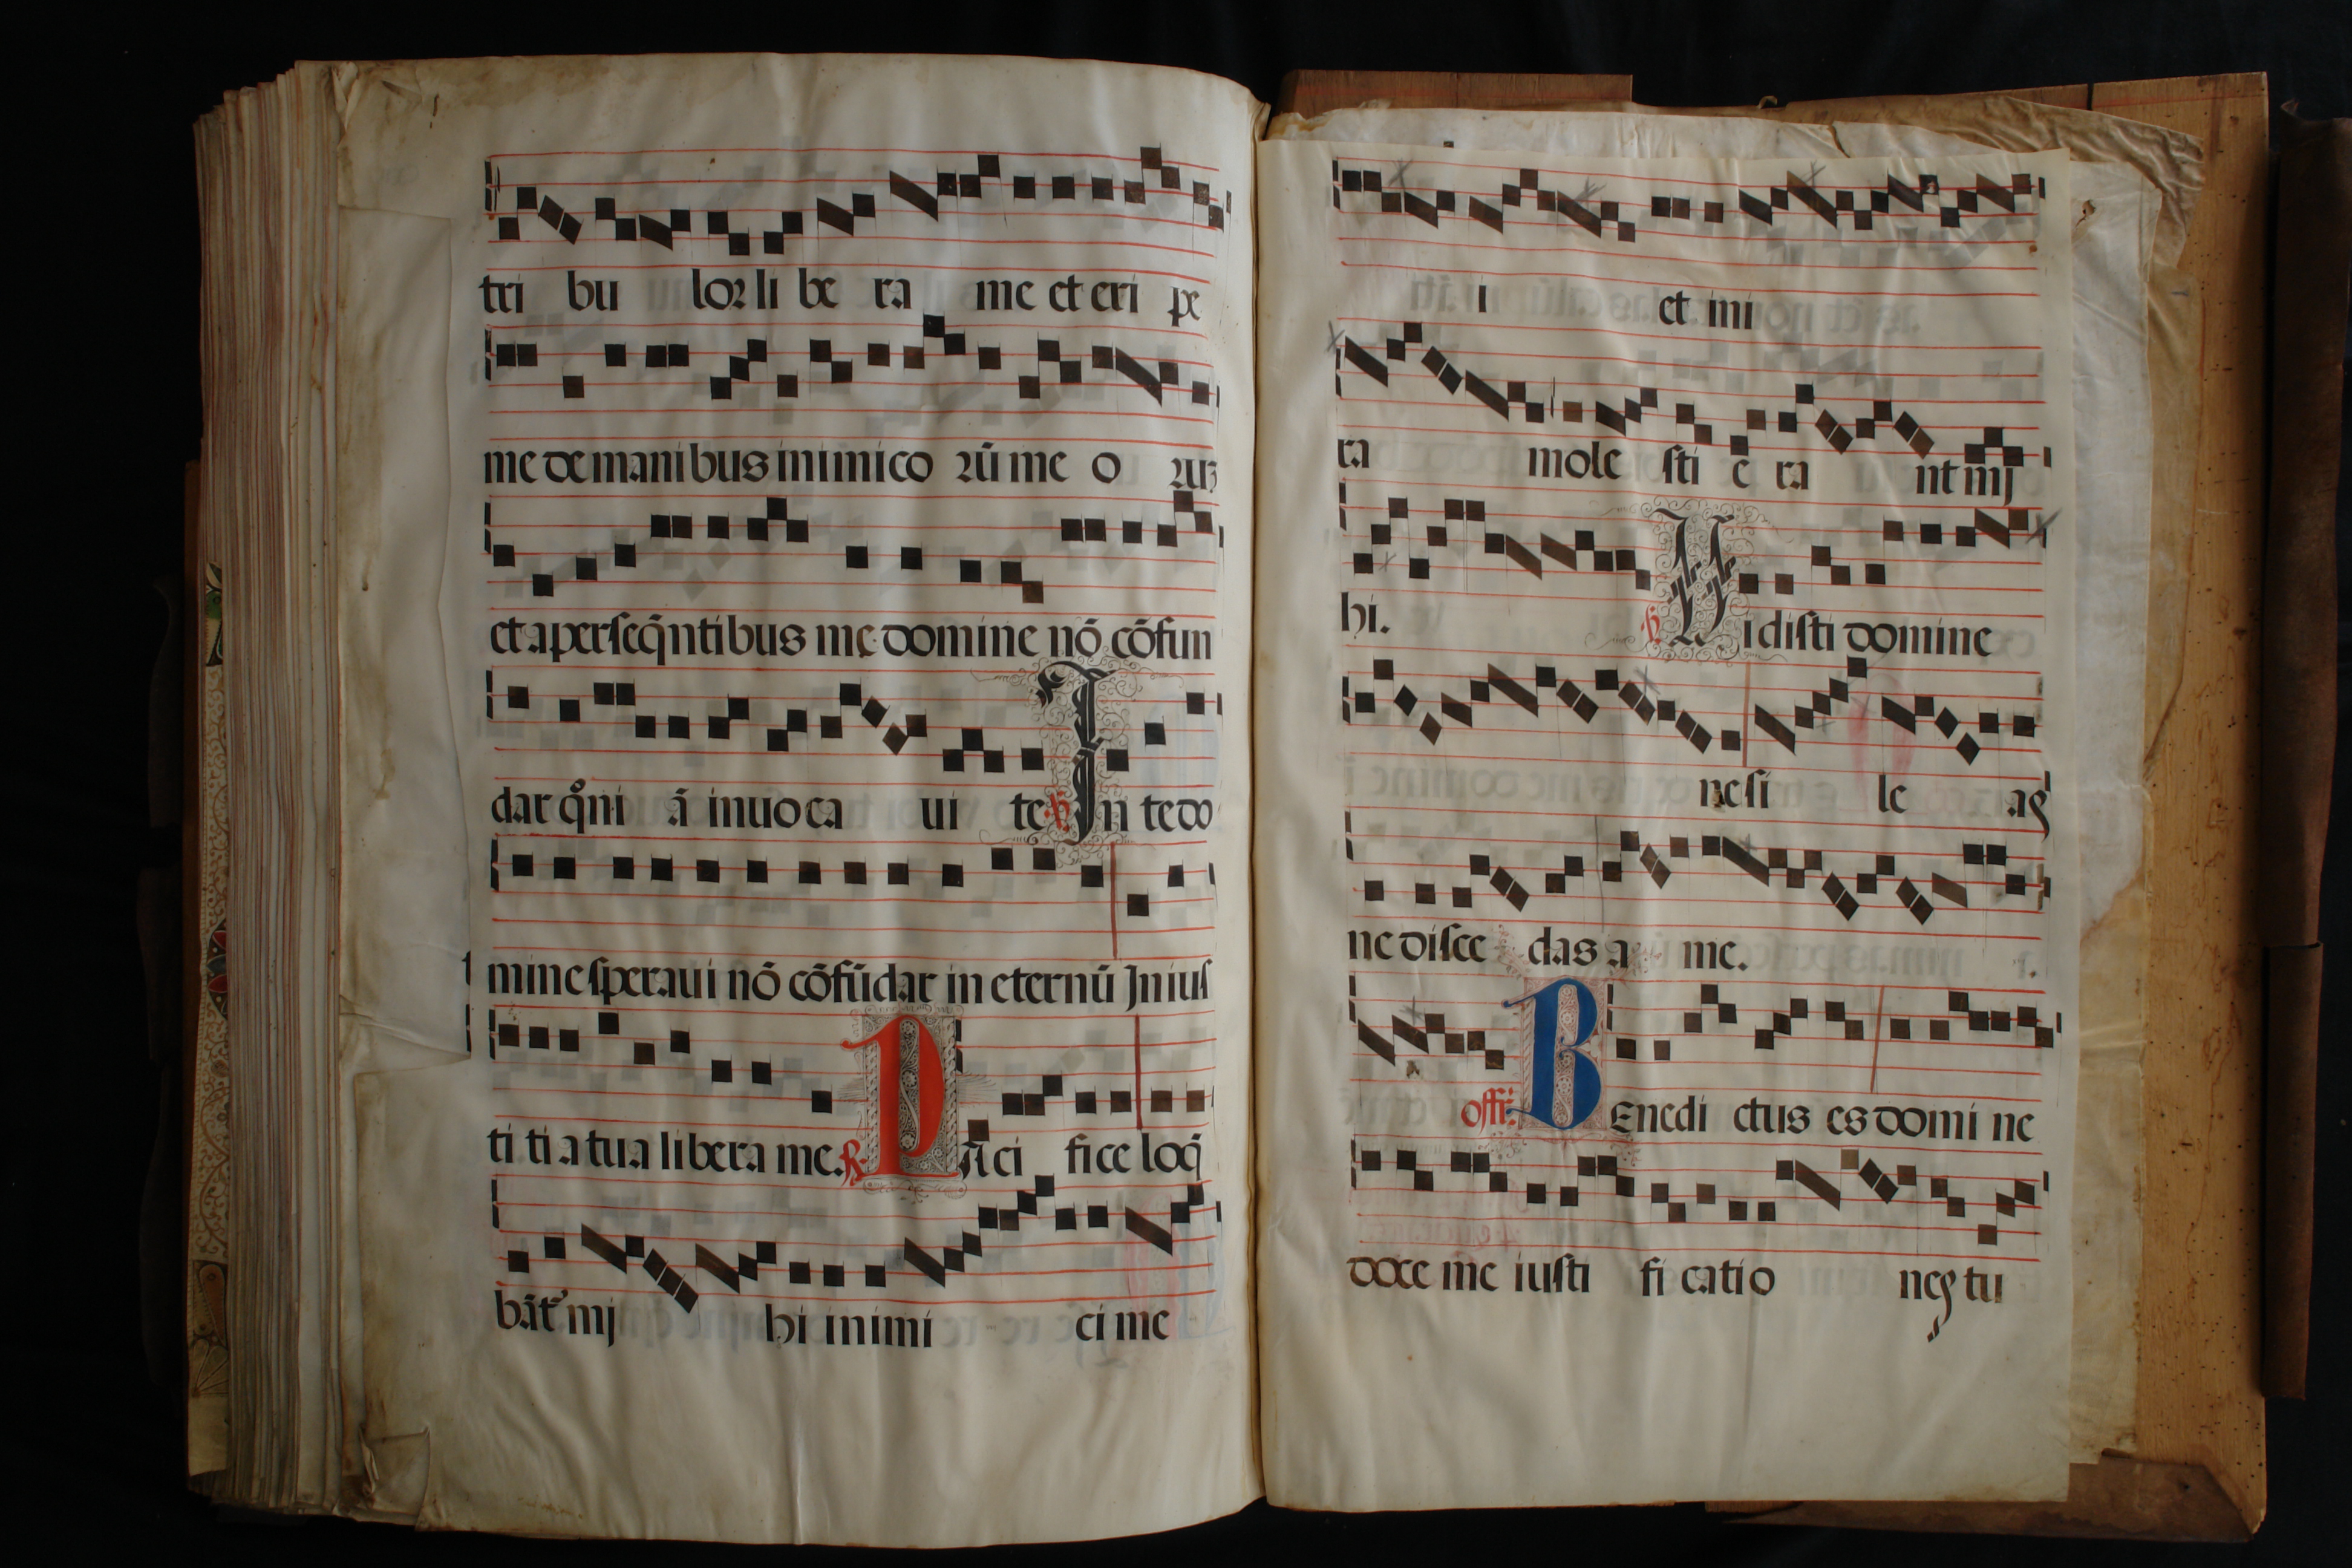 tri bu loꝛ li be ra me et eri pe
me de manibus inimico ꝛū me o ꝛuꝫ
et a perseq̄ntibus me domine nō cōfun
dar qm̊ni ā inuoca ui te ℣ In te do
mine speraui nō cōfūdar in eternū In ius
ti ti a tua libera me. ℟ Pāci fice loq̄
bāt᷑ mj hi inimi ci me
i et mi
ra mole sti e ra nt mj
hi. ℣ Vidisti domine
ne si le as
ne disce das a me.
offi: BEnedi ctus es domi ne
doce me iusti fi catio nes tu